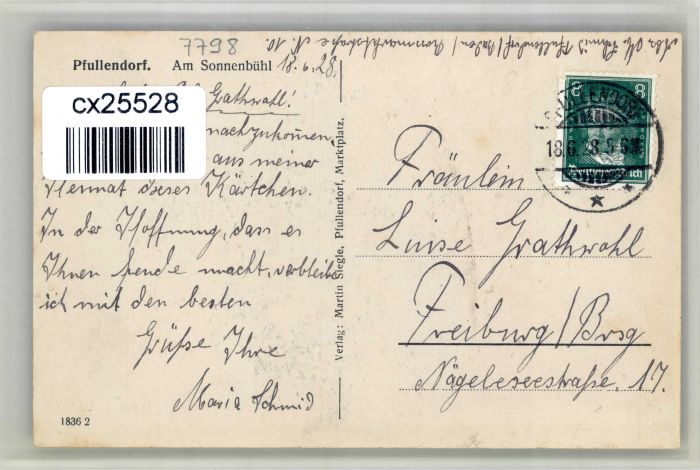 7798
Pfullendorf. Am Sonnenbühl 18.6.28.
Grathwohl!
nachzukommen,
aus meiner
Heimat dieses Kärtchen.
In der Hoffnung, dass es
Ihnen freude macht, verbleibe
ich mit den besten
Grüße Ihre
Maria Schmid
1836 2
cx25528
Verlag: Martin Siegle, Pfullendorf, Marktplatz.
Schmid Pfullendorf/Baden/ Rossmarktstraße N. 10.
8 8
Deutsches Reich
PFULLENDORF
18.6.28.5-6
Fräulein
Luise Grathwohl
Freiburg/Brsg
Nägeleseestraße. 17.